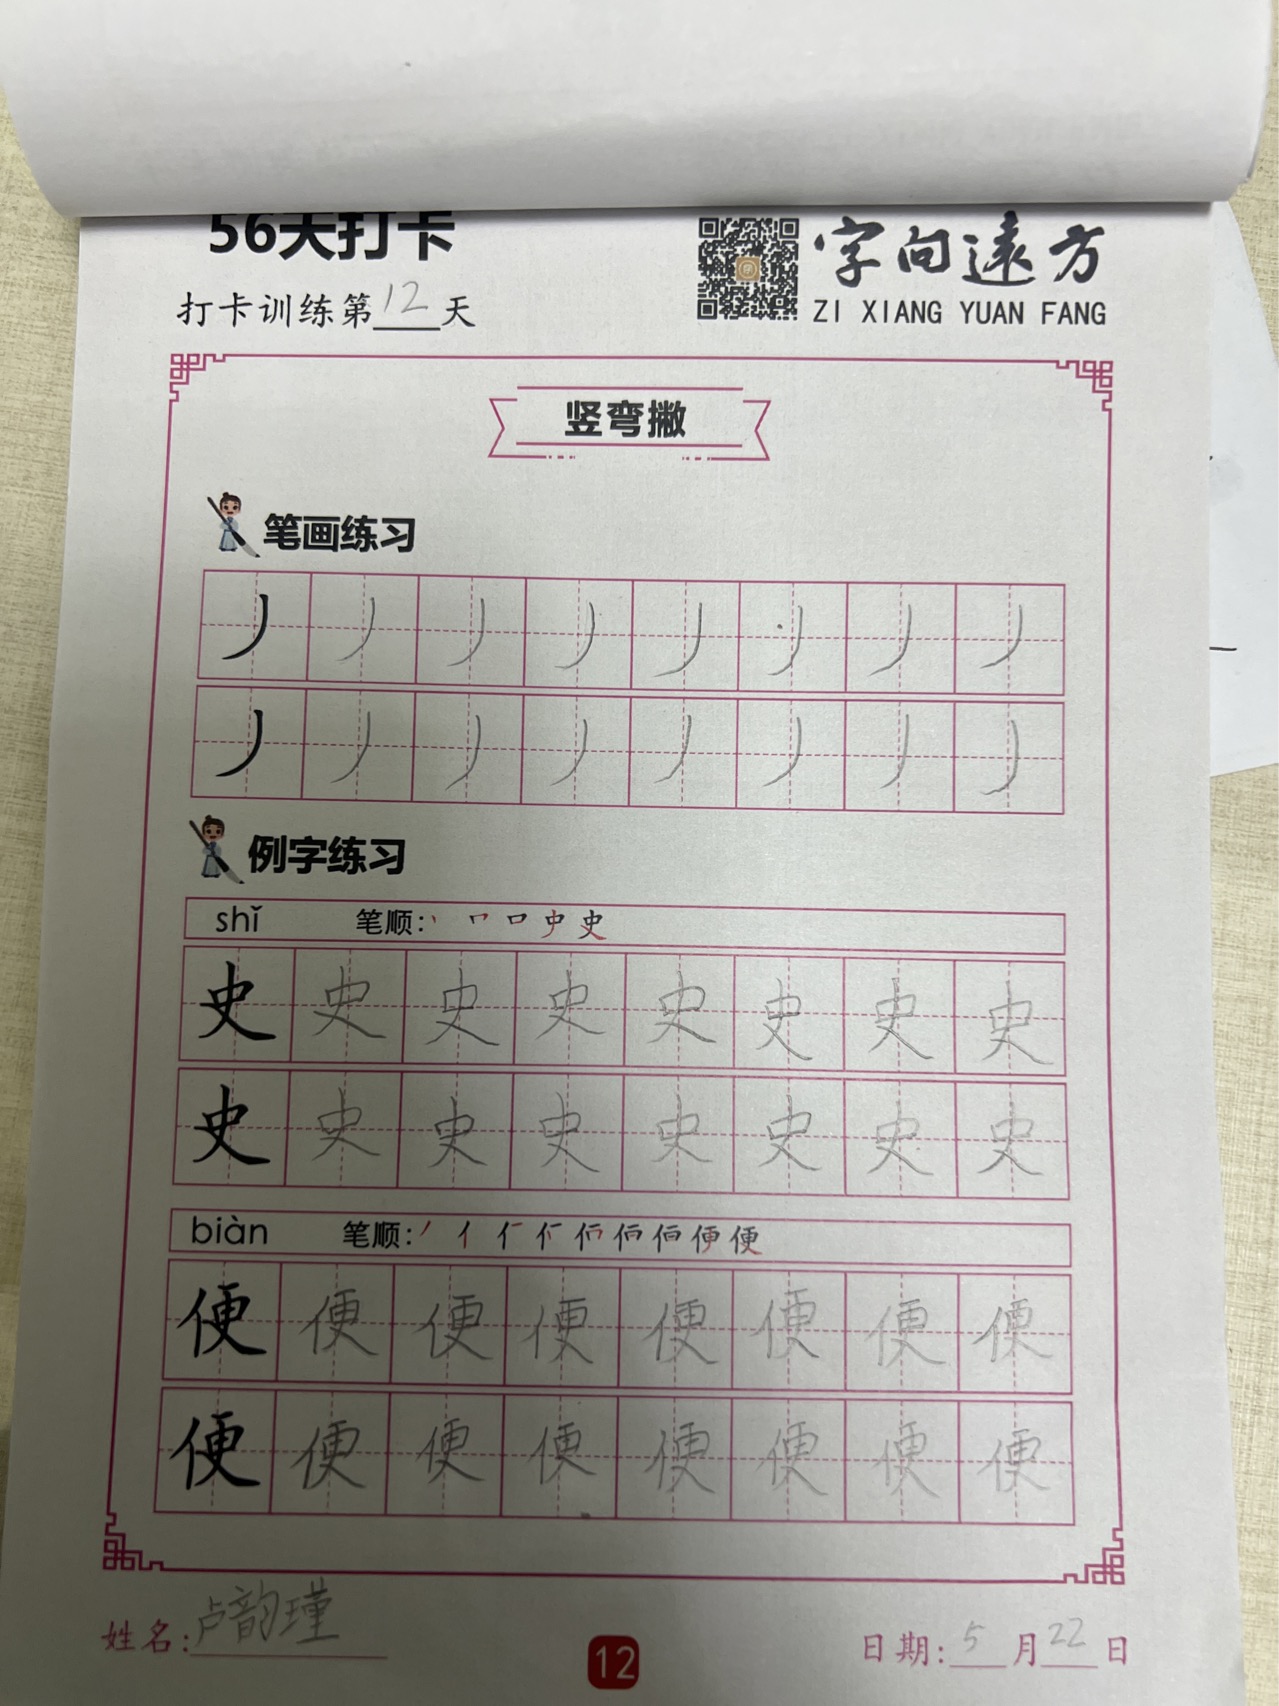 56天打卡
字向遠方
打卡训练第12天
ZI XIANG YUAN FANG
竖弯撇
笔画练习
丿 丿 丿 丿 丿 丿 丿 丿
丿 丿 丿 丿 丿 丿 丿 丿
例字练习
shǐ 笔顺:
史 史 史 史 史 史 史 史
史 史 史 史 史 史 史 史
biàn 笔顺:
便 便 便 便 便 便 便 便
便 便 便 便 便 便 便 便
姓名:卢韵瑾
12
日期:5月22日